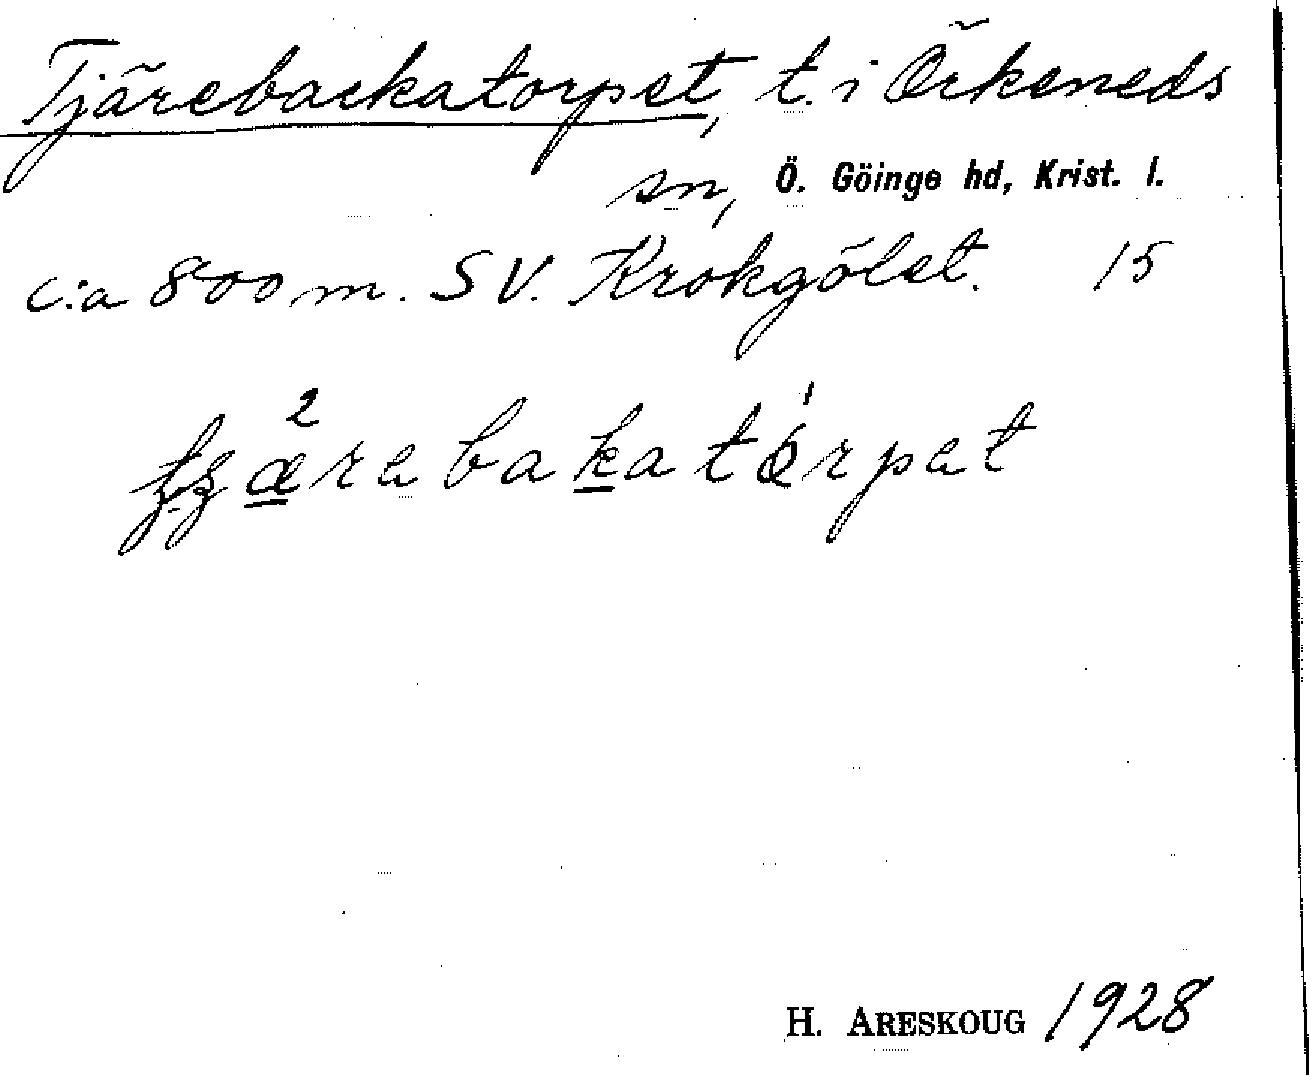 Tjärebackatorpet, t. i Örkeneds
sn, Ö. Göinge hd, Krist. l.
c:a 800 m. SV. Krokgölet. 15
H. ARESKOUG 1928